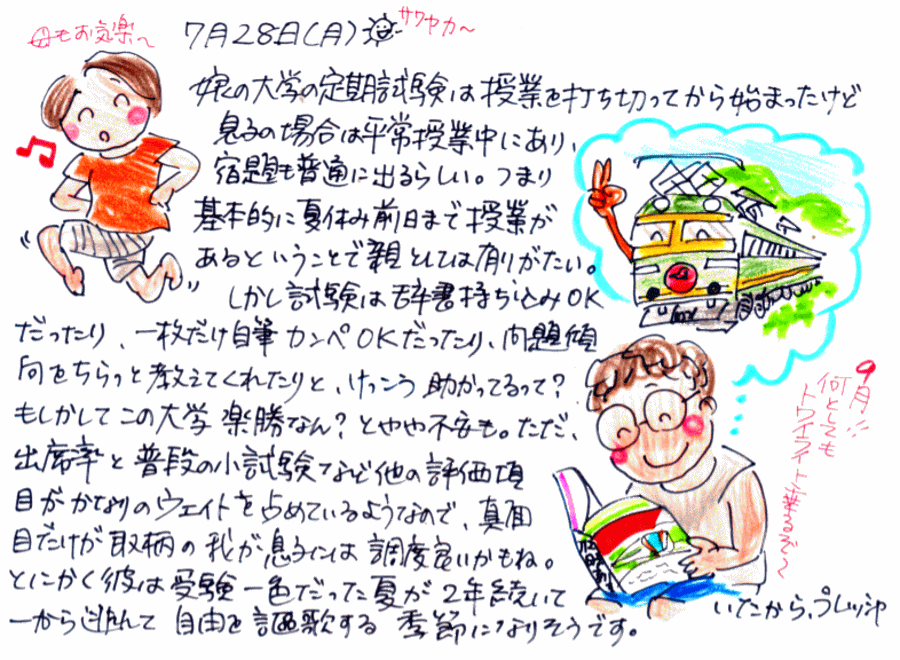 母もお気楽〜
7月28日(月)
サワヤカ〜
娘の大学の定期試験は授業を打ち切ってから始まったけど
息子の場合は平常授業中にあり、
宿題も普通に出るらしい。つまり
基本的に夏休み前日まで授業が
あるということで親としては有りがたい。
しかし試験は辞書持ち込みOK
だったり、一枚だけ自筆カンペOKだったり、問題傾
向をちらっと教えてくれたりと、けっこう助かってるって?
もしかしてこの大学楽勝なん?とやや不安も。ただ、
出席率と普段の小試験など他の評価項
目がかなりのウェイトを占めているようなので、真面
目だけが取柄の我が息子には調度良いかもね。
とにかく彼は受験一色だった夏が2年続いて
いてたから、プレッシャ
ーから逃れて自由を謳歌する季節になりそうです。
9月!!
何としても
トワイライト乗るぞ〜
時刻